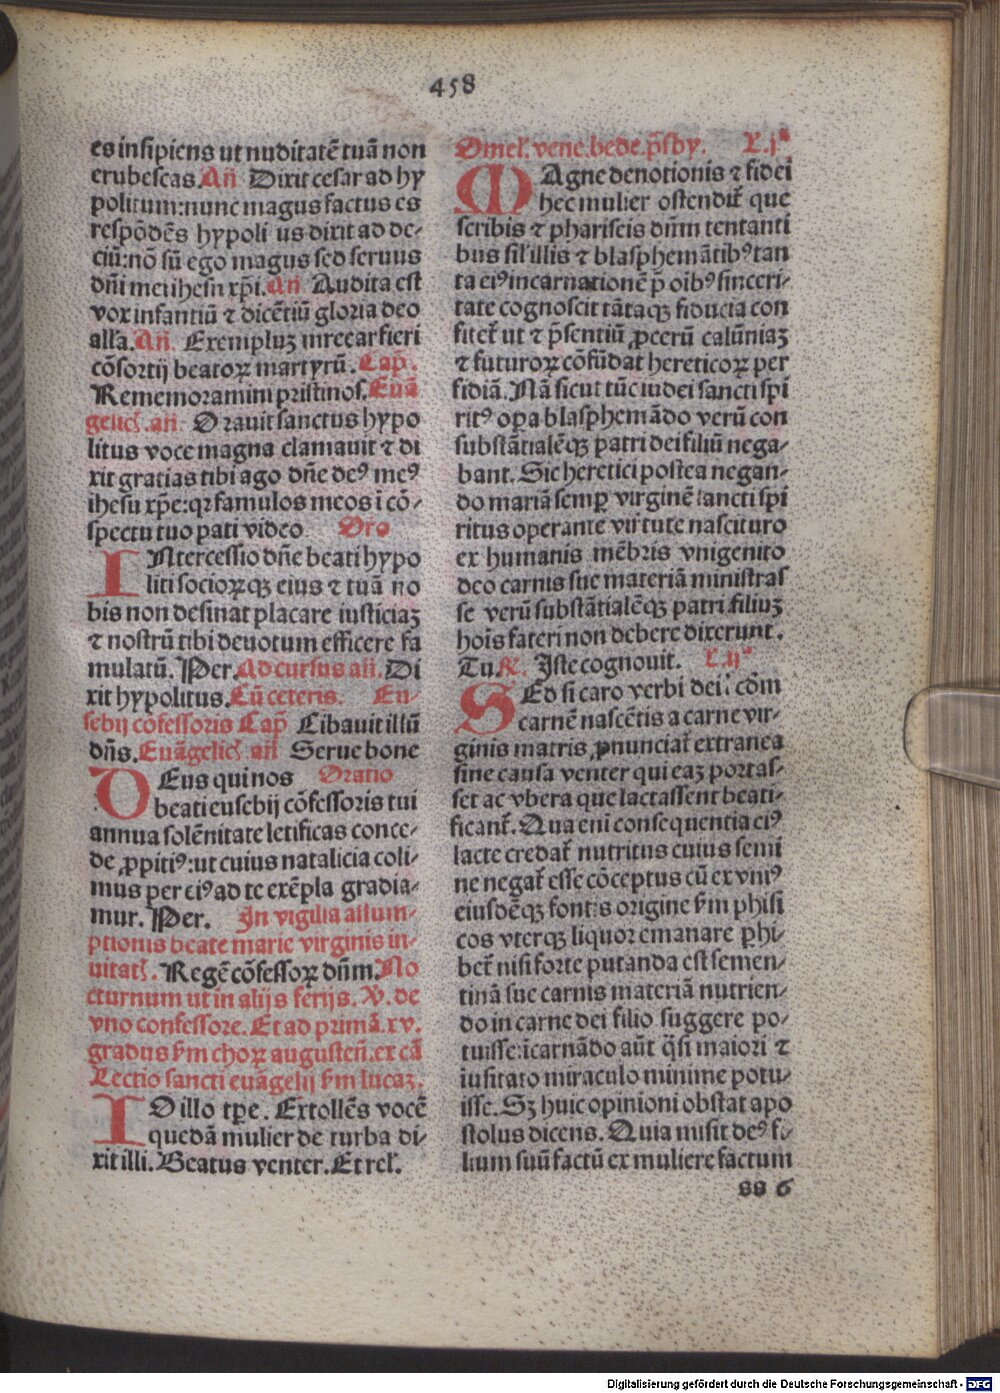 458
es insipiens ut nuditatē tuā non
erubescas Añ Dixit cesar ad hy
politum: nunc magus factus es
respōdēs hypoli us dixit ad de-
ciū: nō sū ego magus sed seruus
dñi mei ihesu xp̄i. Añ Audita est
vox infantiū ⁊ dicētiū gloria deo
alľa. Añ. Exempluꝫ mreear fieri
cōsortij beatoꝝ martyrū. Cap̄.
Rememoramini pristinos. Euā
gelič. añ. Orauit sanctus hypo
litus voce magna clamauit ⁊ di
xit gratias tibi ago dñe deꝰ meꝰ
ihesu xp̄e: qꝛ famulos meos ī cō-
spectu tuo pati video Oro
INtercessio dñe beati hypo
liti socioꝝqꝫ eius ⁊ tuā no
bis non desinat placare iusticiaꝫ
⁊ nostrū tibi deuotum efficere fa
mulatū. Per. Ad cursus añ. Di
xit hypolitus. Cū ceteris. Eu-
sebij cōfessoris Cap̄ Cibauit illū
dñs. Euāgelič añ Serue bone
DEus qui nos Oratio
beati eusebij cōfessoris tui
annua solēnitate letificas conce-
de ꝓpitiꝰ: ut cuius natalicia coli-
mus per eiꝰ ad te exēpla gradia-
mur. Per. In vigilia assum-
ptionis beate marie virginis in-
uitať. Regē cōfessoꝝ dñm. No
cturnum ut in alijs ferijs. V. de
vno confessore. Et ad primā. xv.
gradus ẜm choꝝ augusteñ. ex cā
Lectio sancti euāgelij ẜm lucaꝫ.
IN illo tp̄e. Extollēs vocē
quedā mulier de turba di-
xit illi. Beatus venter. Et reľ.
Omeľ. vene. bede. p̄sby. L. jᵃ
MAgne deuotionis ⁊ fidei
hec mulier ostendiť que
scribis ⁊ phariseis dñm tentanti
bus siľ illis ⁊ blasphemātibꝰ tan
ta eiꝰ incarnationē p̄ oībꝰ sinceri-
tate cognoscit tātaqꝫ fiducia con
fiteť ut ⁊ p̄sentiū ꝓcerū calūniaꝫ
⁊ futuroꝝ cōfūdat hereticoꝝ per
fidiā. Nā sicut tūc iudei sancti spi
ritꝰ op̄a blasphemādo verū con
substātialēqꝫ patri dei filiū nega-
bant. Sic heretici postea negan-
do mariā semꝑ virginē sancti spi
ritus operante virtute nascituro
ex humanis mēbris vnigenito
deo carnis sue materiā ministras
se verū substātialēqꝫ patri filiuꝫ
hois fateri non debere dixerunt.
Tu. ℟. Iste cognouit. L. ijᵃ
SEd si caro verbi dei ẜm
carnē nascētis a carne vir-
ginis matris, ꝓnunciať extranea
sine causa venter qui eaꝫ portas-
set ac vbera que lactassent beati-
ficanť. Qua eni consequentia eiꝰ
lacte credať nutritus cuius semi
ne negať esse cōceptus cū ex vniꝰ
eiusdēqꝫ fontis origine ẜm phisi
cos vterqꝫ liquor emanare ꝑhi-
beť nisi forte putanda est semen-
tinā sue carnis materiā nutrien-
do in carne dei filio suggere po-
tuisse: īcarnādo aūt q̈si maiori ⁊
iusitato miraculo minime potu-
isse. Sꝫ huic opinioni obstat apo
stolus dicens. Quia misit deꝰ fi-
lium suū factū ex muliere factum
ss 6
Digitalisierung gefördert durch die Deutsche Forschungsgemeinschaft - DFG